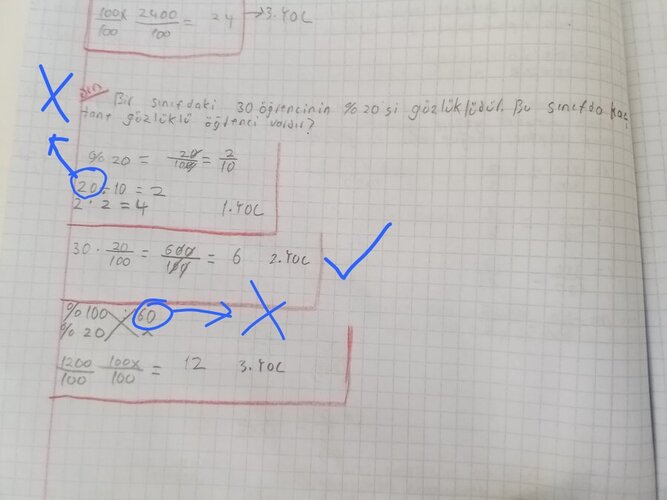 100x/100 2400/100 = 24 → 3.YOL
Örn Bir sınıfdaki 30 öğrencinin %20 si gözlüklüdür. Bu sınıfda kaç
tane gözlüklü öğrenci vardır?
%20 = 20/100 = 2/10
20 : 10 = 2
2 · 2 = 4 1.YOL
30 · 20/100 = 600/100 = 6 2.YOL
%100 60
%20 x
1200/100 100x/100 = 12 3.YOL